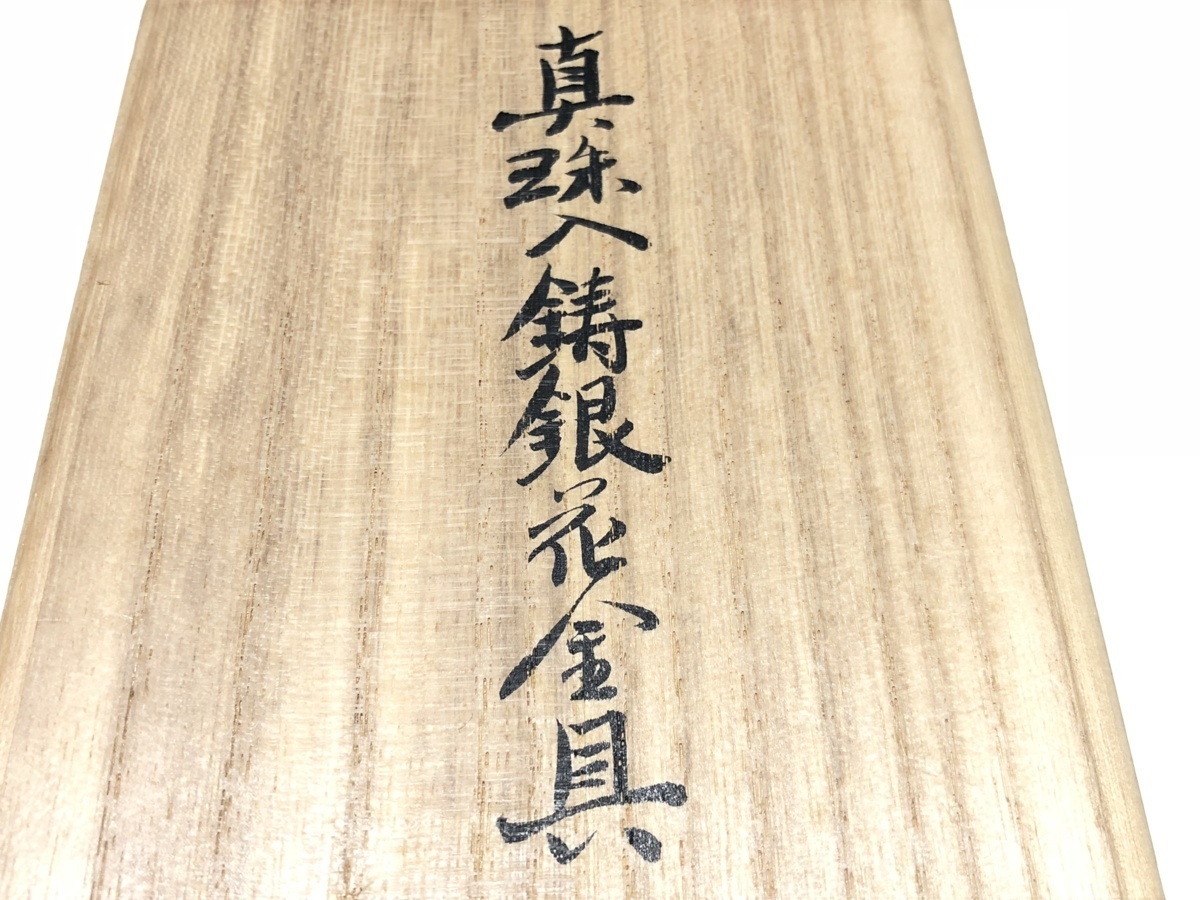 真珠入鋳銀花金具